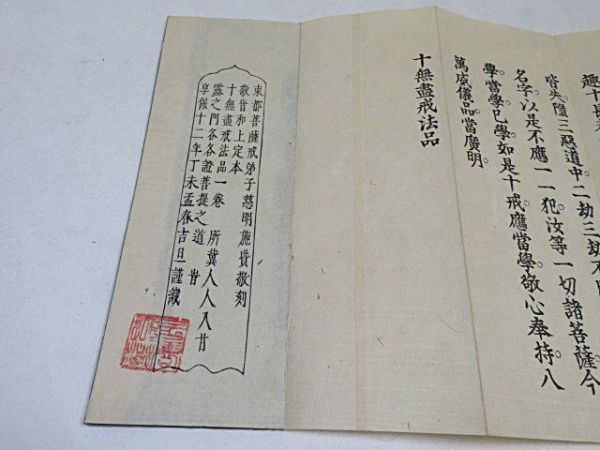 皆失墮三惡道中二劫三劫不
名字。以是不應一一犯。汝等一切諸菩薩今
學。當學。已學。如是十戒應當學敬心奉持。八
萬威儀品。當廣明。
十無盡戒法品
東都菩薩戒弟子慈明施貲敬刻
敬首和上定本
十無盡戒法品一卷　所冀人人入甘
露之門各各證菩提之道　旹
享保十二年丁未孟春吉旦謹識